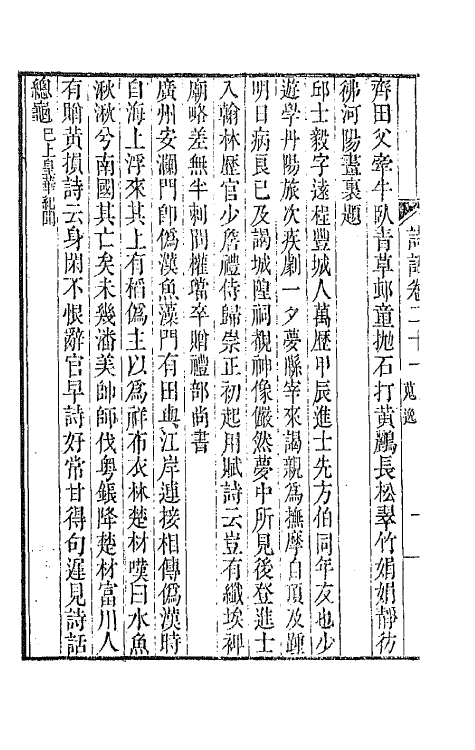 詩話卷二十一 蒐逸 一
齊田父牽牛臥青草邨童拋石打黃鸝長松翠竹娟娟靜彷
彿河陽畫裏題
邱士毅字遠程豐城人萬歷甲辰進士先方伯同年友也少
遊學丹陽旅次疾劇一夕夢縣宰來謁親為撫摩自頂及踵
明日病良已及謁城隍祠覩神像儼然夢中所見後登進士
入翰林歷官少詹禮侍歸崇正初起用賦詩云豈有纖埃裨
廟略差無半刺問權璫卒贈禮部尚書
廣州安瀾門卽偽漢魚藻門有田與江岸連接相傳偽漢時
自海上浮來其上有稻偽主以為祥布衣林楚材嘆曰水魚
湫湫兮南國其亡矣未幾潘美帥師伐粵鋹降楚材富川人
有贈黃損詩云身閑不恨辭官早詩好常甘得句遲見詩話
總龜已上皇華紀聞